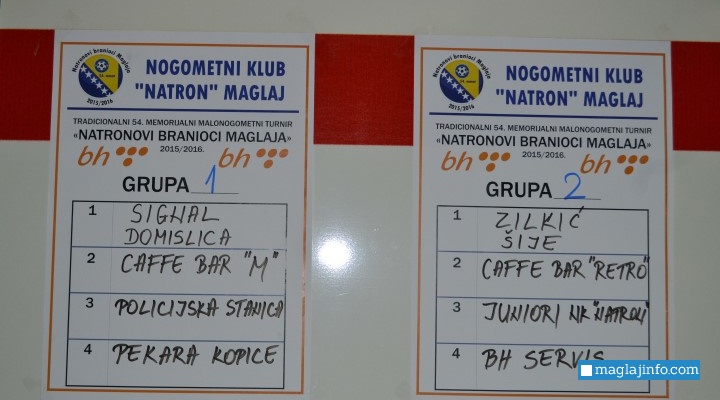 Natronovi branioci Maglaja
2015/2016
NOGOMETNI KLUB
"NATRON" MAGLAJ
TRADICIONALNI 54. MEMORIJALNI MALONOGOMETNI TURNIR
«NATRONOVI BRANIOCI MAGLAJA»
2015/2016.
bh bh
GRUPA 1
1 SIGNAL
DOMISLICA
2 CAFFE BAR "M"
3 POLICIJSKA STANICA
4 PEKARA KOPICE
Natronovi branioci Maglaja
2015/2016
NOGOMETNI KLUB
"NATRON" MAGLAJ
TRADICIONALNI 54. MEMORIJALNI MALONOGOMETNI TURNIR
«NATRONOVI BRANIOCI MAGLAJA»
2015/2016.
bh bh
GRUPA 2
1 ZILKIĆ
ŠIJE
2 CAFFE BAR "RETRO"
3 JUNIORI NK "NATRON"
4 BH SERVIS
maglajinfo.com